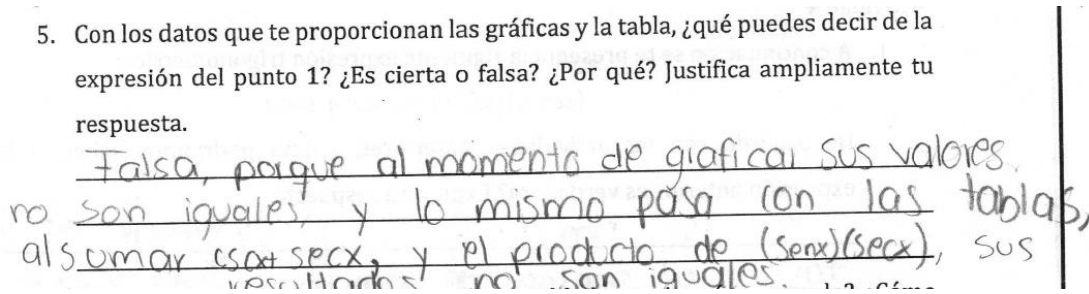 5. Con los datos que te proporcionan las gráficas y la tabla, ¿qué puedes decir de la
expresión del punto 1? ¿Es cierta o falsa? ¿Por qué? Justifica ampliamente tu
respuesta.
Falsa, porque al momento de graficar sus valores
no son iguales, y lo mismo pasa con las tablas,
al sumar cscx+secx, y el producto de (senx)(secx), sus
resultados no son iguales.